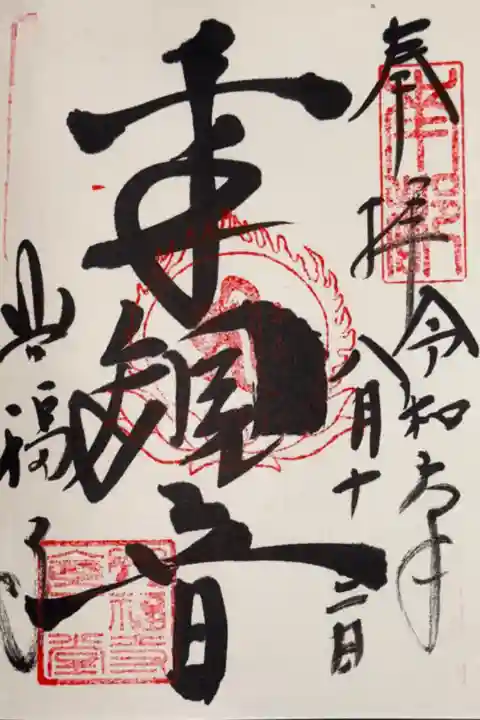 奉拝
令和六年
八月十二日
千手観音
興福寺
南都